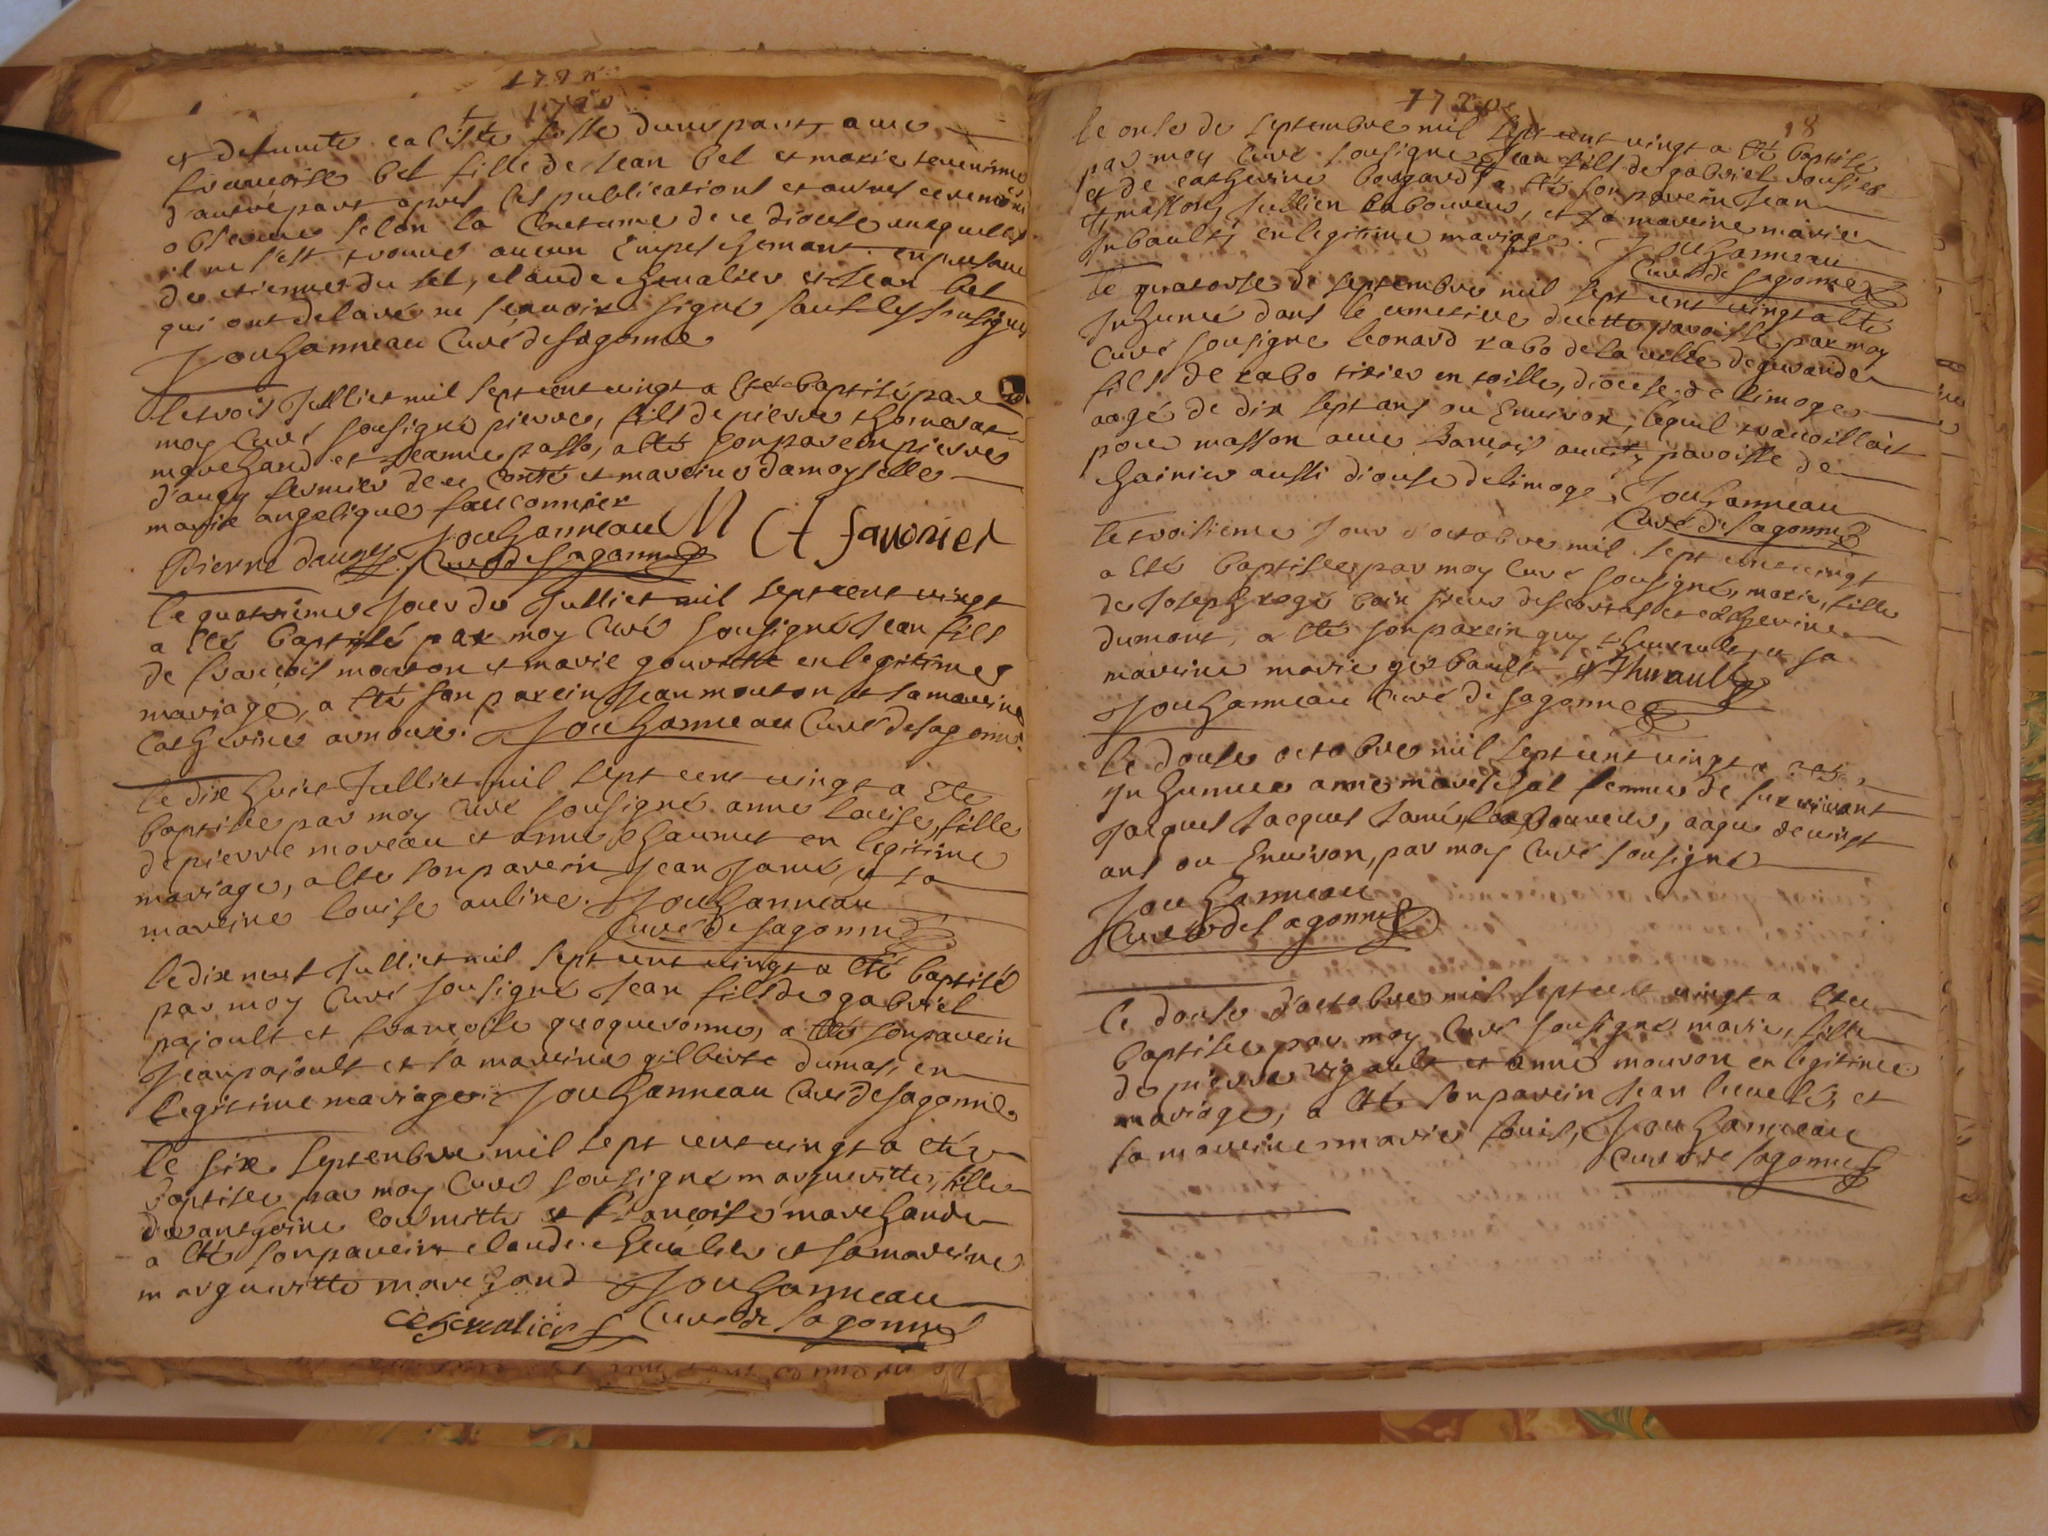 1720
1720
et defuncte caliste fosse dune part, avec
francoise bet fille de Jean bet et marie
d'autre part apres les publications et autres ceremonies
observees selon la Coutume de ce diocese auxquelles
il ne s'est trouvé aucun Empeschement en presence
de etienne du set, claude chevalier et Jean bet
qui ont declaré ne scavoir signé sauf les soussignes
Jouhanneau Curé de Sagonne
le trois Julliet mil sept cent vingt a Eté baptisé par
moy Curé sousigné pierre, fils de pierre thomas
marchand et Jeanne passo, a eté son parein pierre
d'augy fermier de ce Conté et mareine damoyselle
marie angelique fauconnier
Pierre daugy Jouhanneau M A fauconier
Curé de Sagonne
le quatriéme Jour de Julliet mil sept cent vingt
a eté baptisé par moy Curé sousigné Jean fils
de francois mouton et marie gourette en legitime
mariage, a eté son parein Jean mouton et sa mareine
Catherine arnoux. Jouhanneau Curé de Sagonne
le dix huict Julliet mil sept cent vingt a Ete
baptisee par moy Curé sousigné anne louise, fille
de pierre moreau et anne chaumet en legitime
mariage, a eté son parein Jean Jamé, et sa
mareine louise auline. Jouhanneau
Curé de Sagonne
le dix neuf Julliet mil sept cent vingt a eté baptisé
par moy Curé sousigné Jean fils de gabriel
pajoult et francoise quoqueronne, a eté son parein
Jean pajoult et sa mareine gilberte dumas, en
legitime mariage Jouhanneau Curé de Sagonne
le six septembre mil sept cent vingt a eté
baptisee par moy Curé sousigné margueritte, fille
de anthoine cormitte et francoise marchande
a eté son parein claude chevalier et sa mareine
margueritte marchand Jouhanneau
CChevalier Curé de Sagonne
1720
18
le onse de septembre mil sept cent vingt a eté baptisé
par moy Curé sousigné Jean fils de gabriel
et de catherine bougard, a eté son parein Jean
masson, Jullien laboureur, et sa mareine marie
Inbault, en legitime mariage. Jouhanneau
Curé de Sagonne
le quatorse de septembre mil sept cent vingt a eté
Inhumé dans le cemetiere de cette paroisse par moy
Curé sousigné leonard rabo de la ville de
fils de rabo tixier en toille, diocese de limoge
aagé de dix sept ans ou Environ, lequel travaillait
pour masson avec francois paroisse de
aussi diocese de limoge, Jouhanneau
Curé de Sagonne
le troisieme Jour d'octobre mil sept cent vingt
a eté baptisee par moy Curé sousigné, marie, fille
de Joseph rogé et catherine
dumont, a eté son parein guy thurault, et sa
mareine marie gerbault Thurault
Jouhanneau Curé de Sagonne
le douse octobre mil sept cent vingt a eté
Inhumee anne mareschal femme de survivant
Jacques Jacques Jamé, laboureur, aagee de vingt
ans ou Environ, par moy Curé sousigné
Jouhanneau
Curé de Sagonne
le douse d'octobre mil sept cent vingt a etée
baptisee par moy Curé sousigné marie, fille
de pierre rigault et anne mouron en legitime
mariage, a eté son parein Jean et
sa mareine marie Jouhanneau
Curé de Sagonne